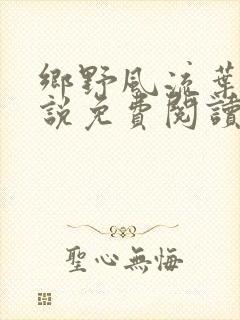 鄉野風流葉
說免費閱讀
聖心無悔